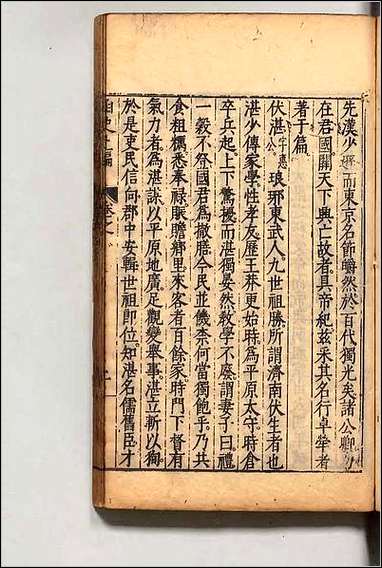 先漢少遜而東京名節皭然於百代獨光矣諸公卿
在君國關天下興亡故者具帝紀茲采其名行卓犖者
著于篇
伏湛字惠公琅邪東武人九世祖勝所謂濟南伏生者也
湛少傳家學性孝友歷王莽更始時為平原太守時倉
卒兵起上下驚擾而湛獨晏然教學不廢謂妻子曰禮
一穀不祭國君為撤膳今民並饑奈何當獨飽乎乃共
食粗糲悉奉祿賑贍鄉里來客者百餘家時門下督有
氣力者為湛謀以平原地廣足觀變舉事湛立斬以徇
於是吏民信向郡中安輯世祖即位知湛名儒舊臣才
史
編
卷之